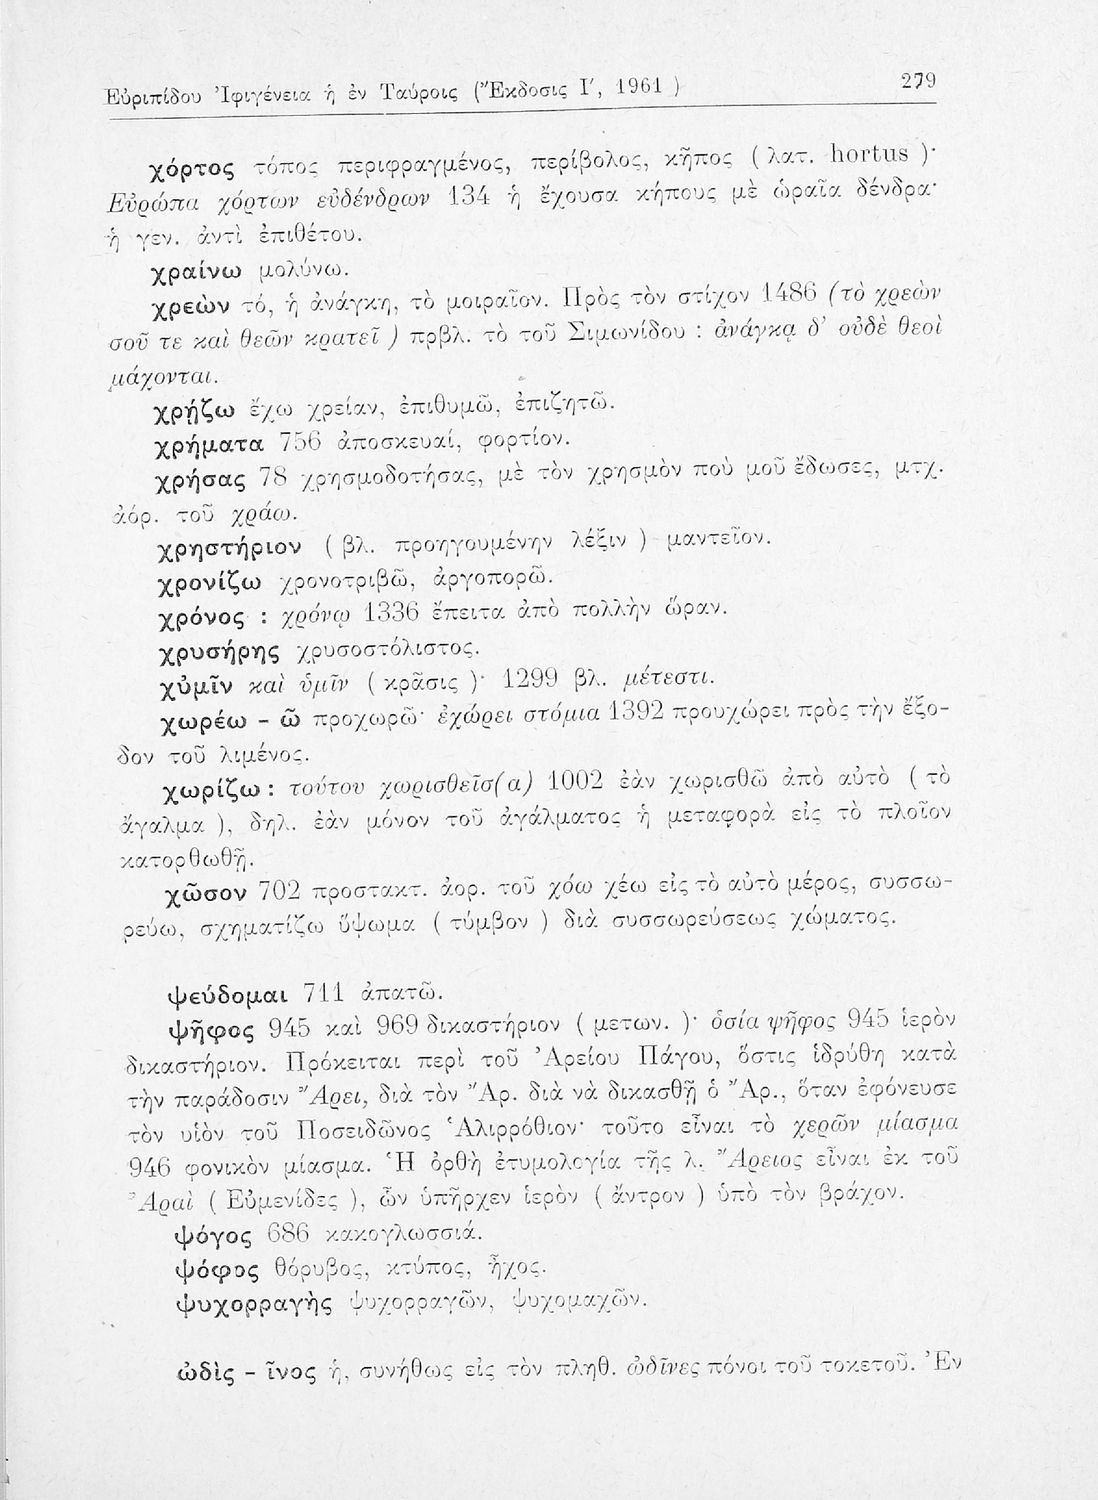 Εὐριπίδου Ἰφιγένεια ἡ ἐν Ταύροις (Ἔκδοσις Γ′, 1961 ) 279
χόρτος τόπος περιφραγμένος, περίβολος, κῆπος ( λατ. hortus )·
Εὐρώπα χόρτων εὐδένδρων 134 ἡ ἔχουσα κήπους μὲ ὡραῖα δένδρα·
ἡ γεν. ἀντὶ ἐπιθέτου.
χραίνω μολύνω.
χρεὼν τό, ἡ ἀνάγκη, τὸ μοιραῖον. Πρὸς τὸν στίχον 1486 (τὸ χρεὼν
σοῦ τε καὶ θεῶν κρατεῖ ) πρβλ. τὸ τοῦ Σιμωνίδου : ἀνάγκᾳ δ’ οὐδὲ θεοὶ
μάχονται.
χρῄζω ἔχω χρείαν, ἐπιθυμῶ, ἐπιζητῶ.
χρήματα 756 ἀποσκευαί, φορτίον.
χρήσας 78 χρησμοδοτήσας, μὲ τὸν χρησμὸν ποὺ μοῦ ἔδωσες, μτχ.
ἀόρ. τοῦ χράω.
χρηστήριον ( βλ. προηγουμένην λέξιν ) μαντεῖον.
χρονίζω χρονοτριβῶ, ἀργοπορῶ.
χρόνος : χρόνῳ 1336 ἔπειτα ἀπὸ πολλὴν ὥραν.
χρυσήρης χρυσοστόλιστος.
χὐμῖν καὶ ὑμῖν ( κρᾶσις )· 1299 βλ. μέτεστι.
χωρέω – ῶ προχωρῶ· ἐχώρει στόμια 1392 προυχώρει πρὸς τὴν ἔξο-
δον τοῦ λιμένος.
χωρίζω : τούτου χωρισθεῖσ(α) 1002 ἐὰν χωρισθῶ ἀπὸ αὐτὸ ( τὸ
ἄγαλμα ), δηλ. ἐὰν μόνον τοῦ ἀγάλματος ἡ μεταφορὰ εἰς τὸ πλοῖον
κατορθωθῇ.
χῶσον 702 προστακτ. ἀορ. τοῦ χόω χέω εἰς τὸ αὐτὸ μέρος, συσσω-
ρεύω, σχηματίζω ὕψωμα ( τύμβον ) διὰ συσσωρεύσεως χώματος.
ψεύδομαι 711 ἀπατῶ.
ψῆφος 945 καὶ 969 δικαστήριον ( μετων. )· ὁσία ψῆφος 945 ἱερὸν
δικαστήριον. Πρόκειται περὶ τοῦ Ἀρείου Πάγου, ὅστις ἱδρύθη κατὰ
τὴν παράδοσιν Ἄρει, διὰ τὸν Ἄρ. διὰ νὰ δικασθῇ ὁ Ἄρ., ὅταν ἐφόνευσε
τὸν υἱὸν τοῦ Ποσειδῶνος Ἁλιρρόθιον· τοῦτο εἶναι τὸ χερῶν μίασμα
946 φονικὸν μίασμα. Ἡ ὀρθὴ ἐτυμολογία τῆς λ. Ἄρειος εἶναι ἐκ τοῦ
Ἀραὶ ( Εὐμενίδες ), ὧν ὑπῆρχεν ἱερὸν ( ἄντρον ) ὑπὸ τὸν βράχον.
ψόγος 686 κακογλωσσιά.
ψόφος θόρυβος, κτύπος, ἦχος.
ψυχορραγὴς ψυχορραγῶν, ψυχομαχῶν.
ὠδὶς – ῖνος ἡ, συνήθως εἰς τὸν πληθ. ὠδῖνες πόνοι τοῦ τοκετοῦ. Ἐν